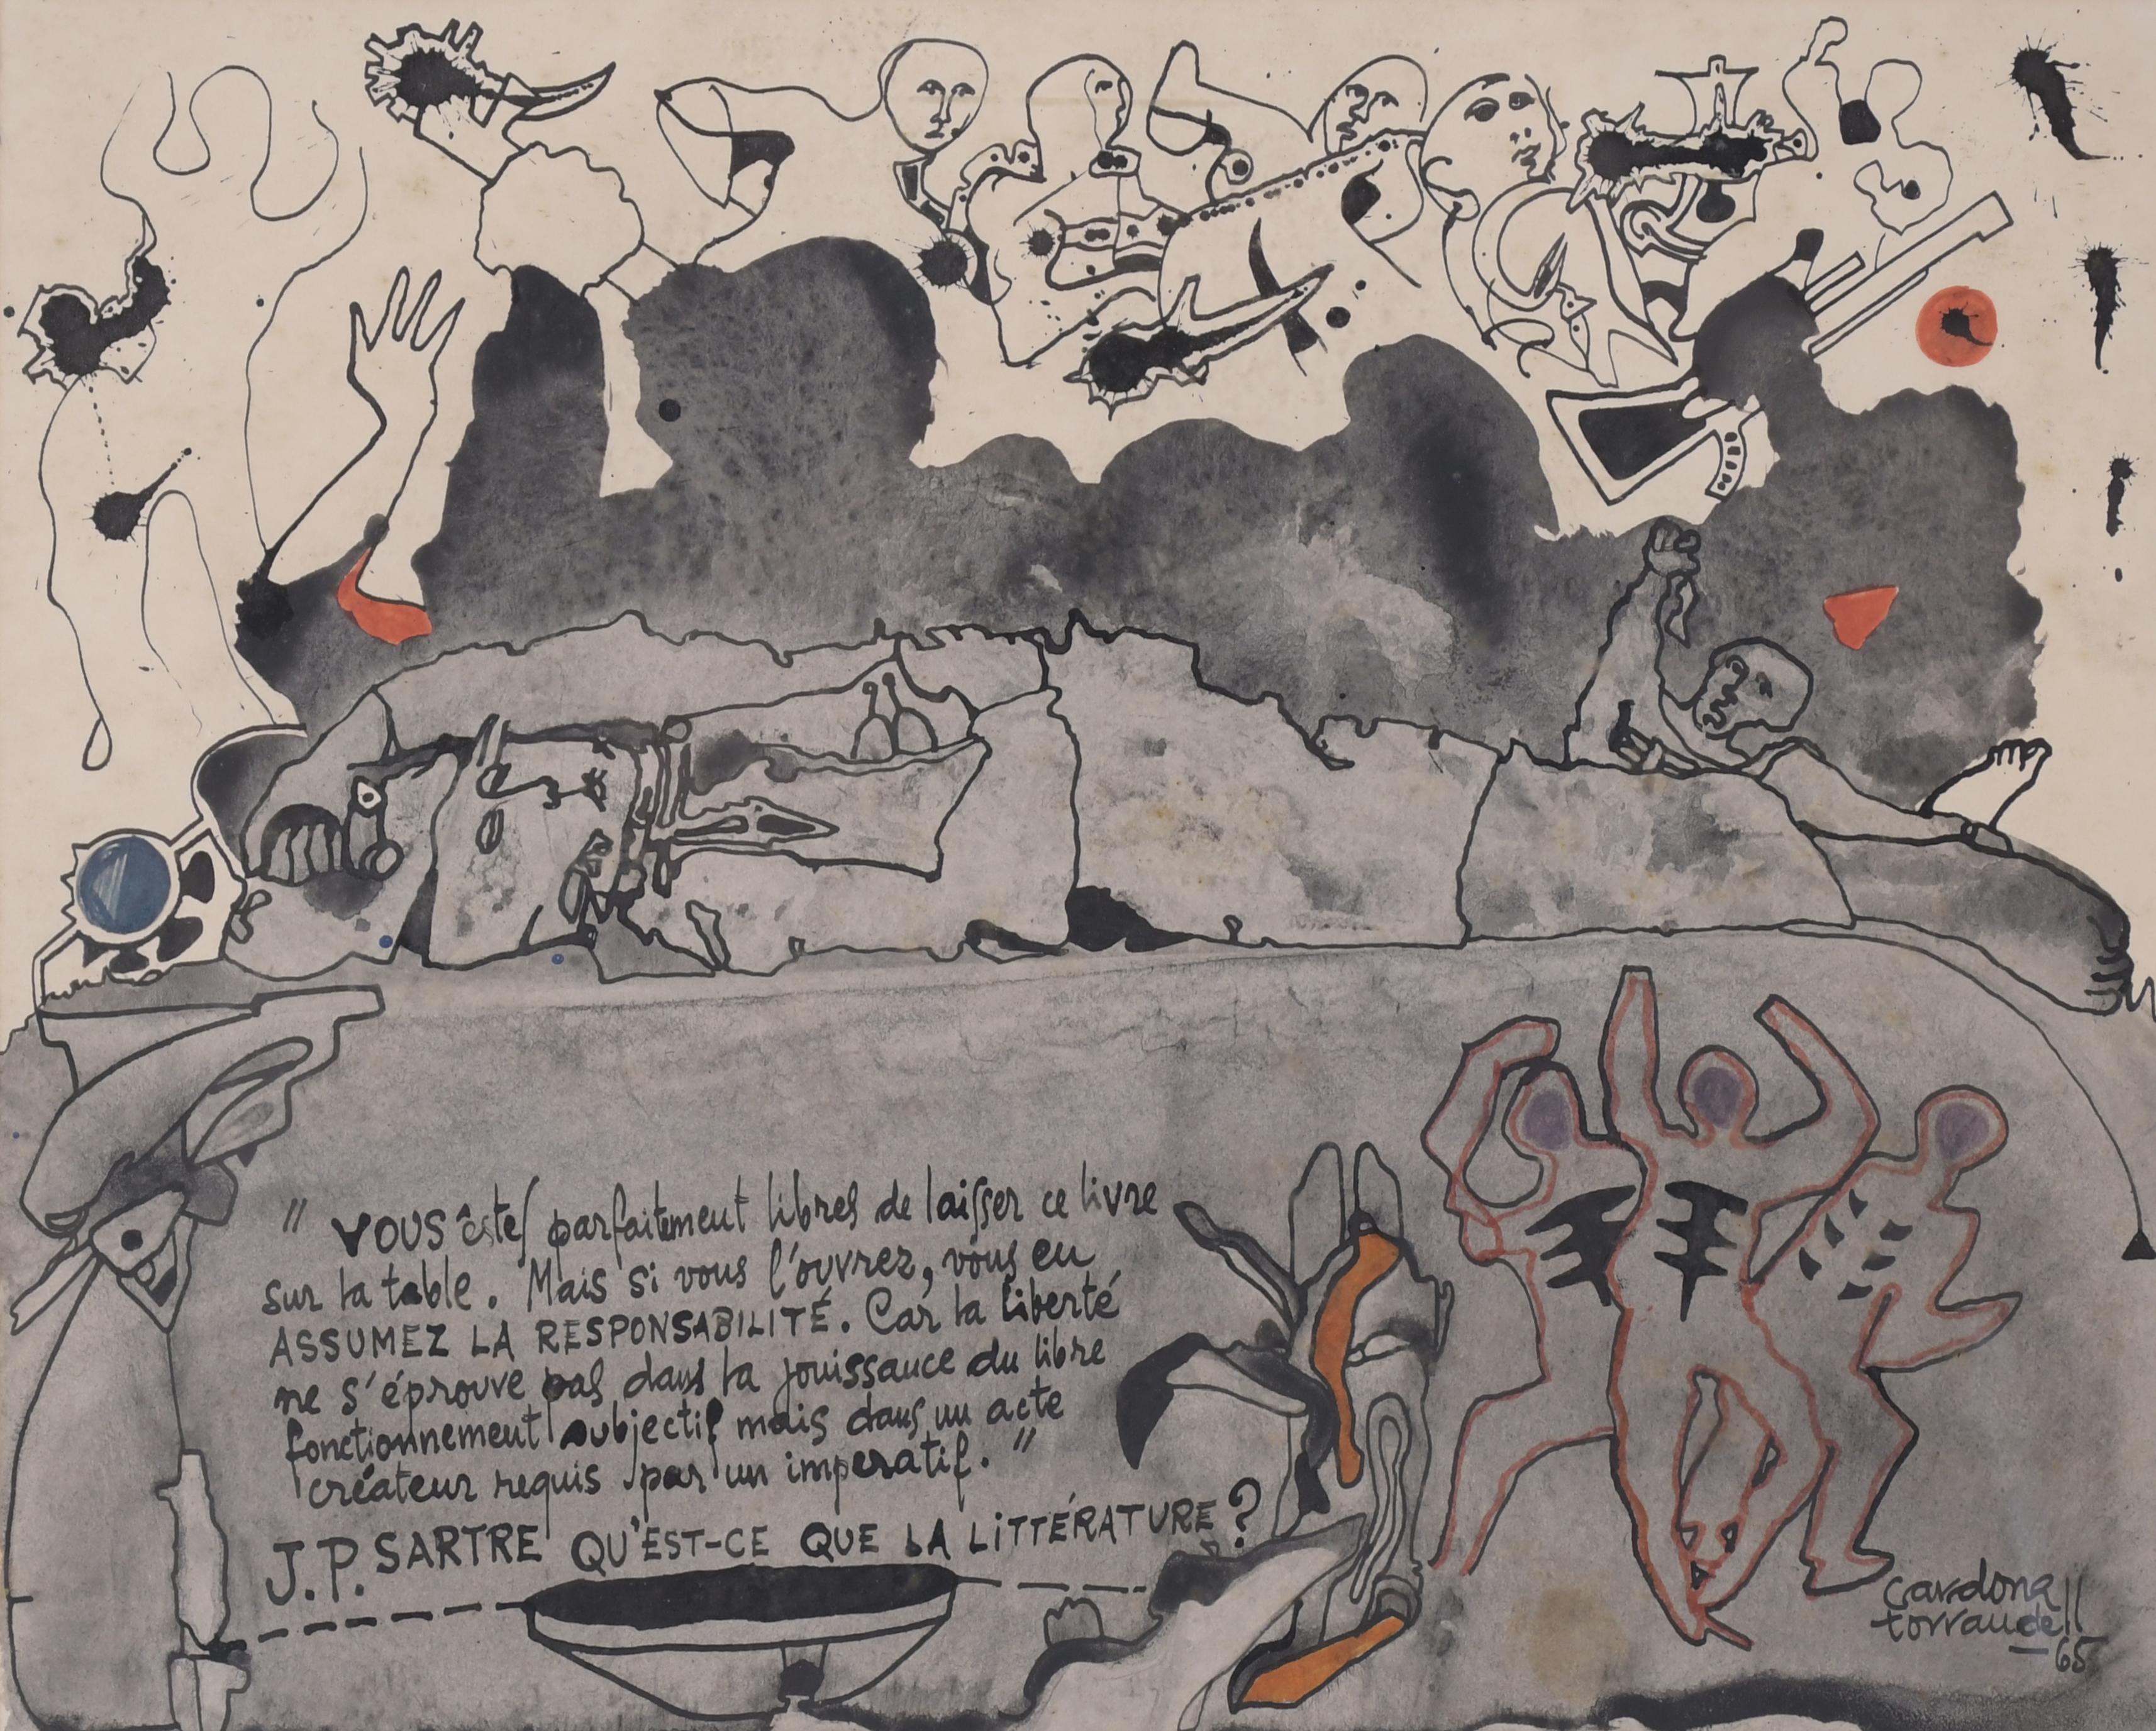 " VOUS êtes parfaitement libres de laisser ce livre
sur la table. Mais si vous l'ouvrez, vous en
ASSUMEZ LA RESPONSABILITÉ. Car la liberté
ne s'éprouve pas dans la jouissance du libre
fonctionnement subjectif mais dans un acte
créateur requis par un imperatif. "
J.P. SARTRE QU'EST-CE QUE LA LITTÉRATURE ?
cardona
torrandell
-65